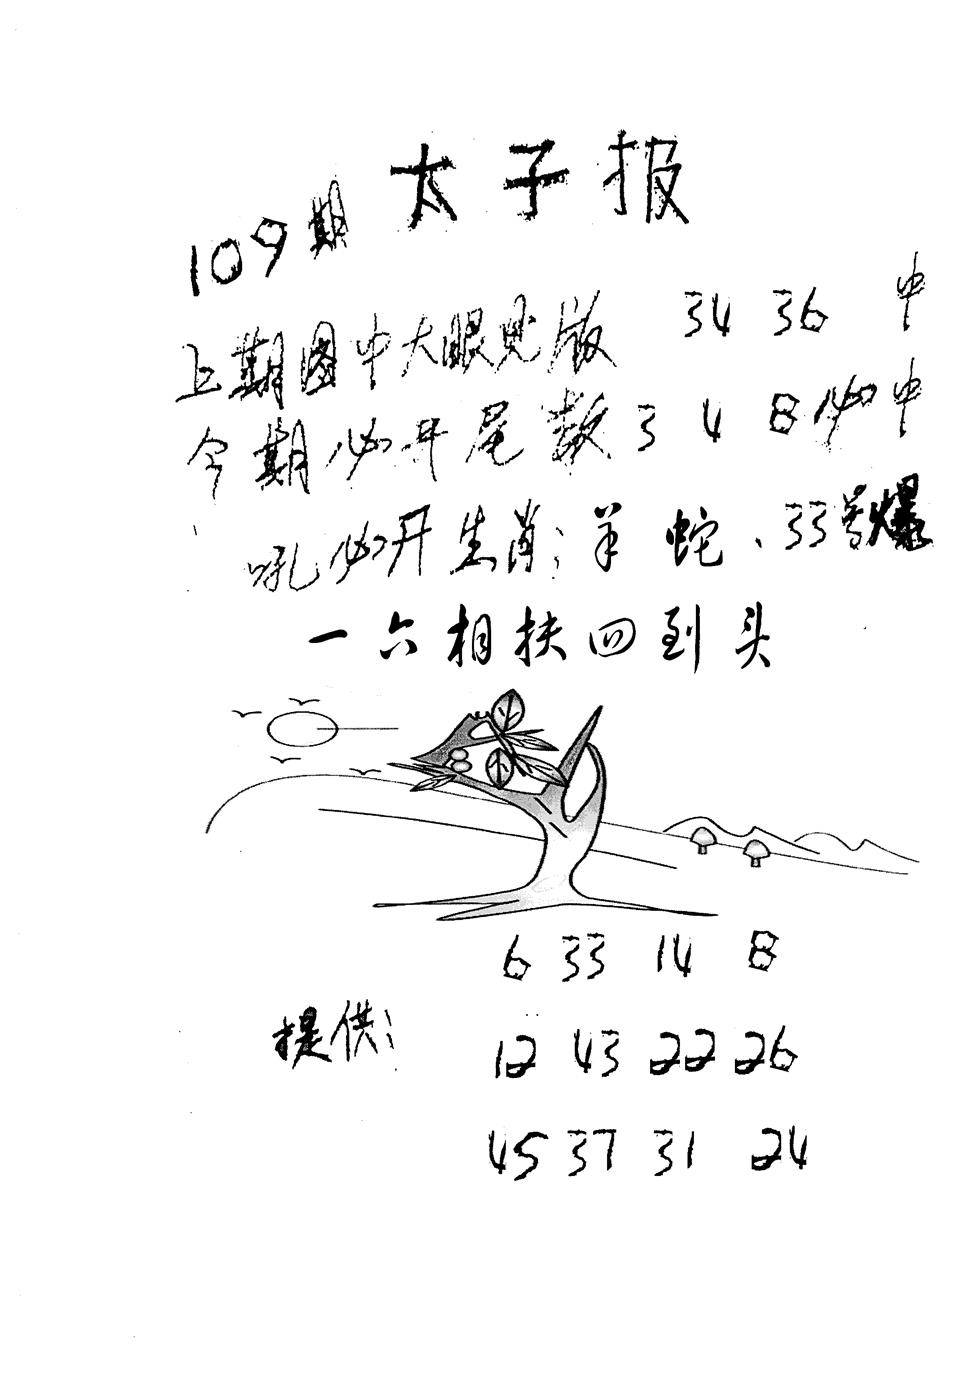 太子报
109期
上期图中大眼见版 34 36 中
今期必开尾数 3 4 8 必中
吼必开生肖:羊蛇、33号爆
一六相扶四到头
6 33 14 8
提供:
12 43 22 26
45 37 31 24